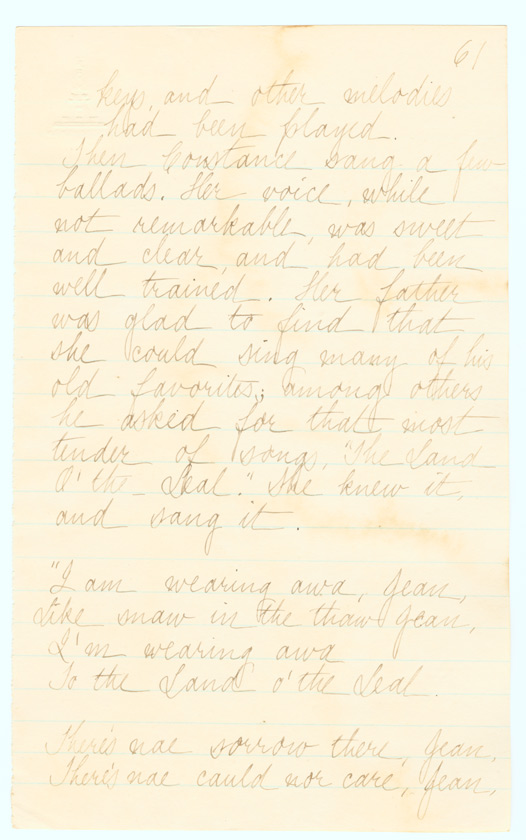 61
keys, and other melodies
had been played.
Then Constance sang a few
ballads. Her voice, while
not remarkable, was sweet
and clear, and had been
well trained. Her father
was glad to find that
she could sing many of his
old favorites; among others
he asked for that most
tender of songs, "The Land
O' the Leal." She knew it,
and sang it.
"I am wearing awa, Jean,
Like snaw in the thaw Jean,
I'm wearing awa
To the Land o' the Leal.
There's nae sorrow there, Jean,
There's nae cauld nor care, Jean,